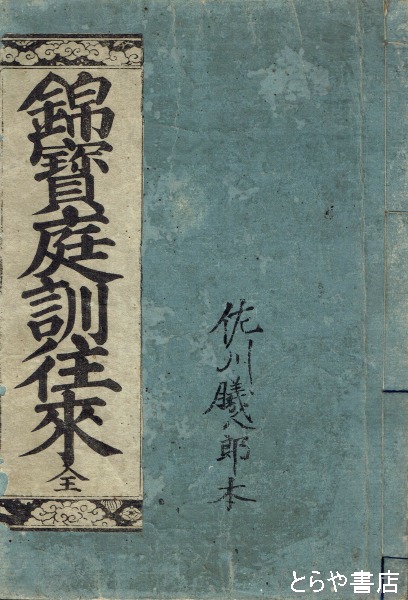 錦寶庭訓往來全
佐川曦八郎本
とらや書店